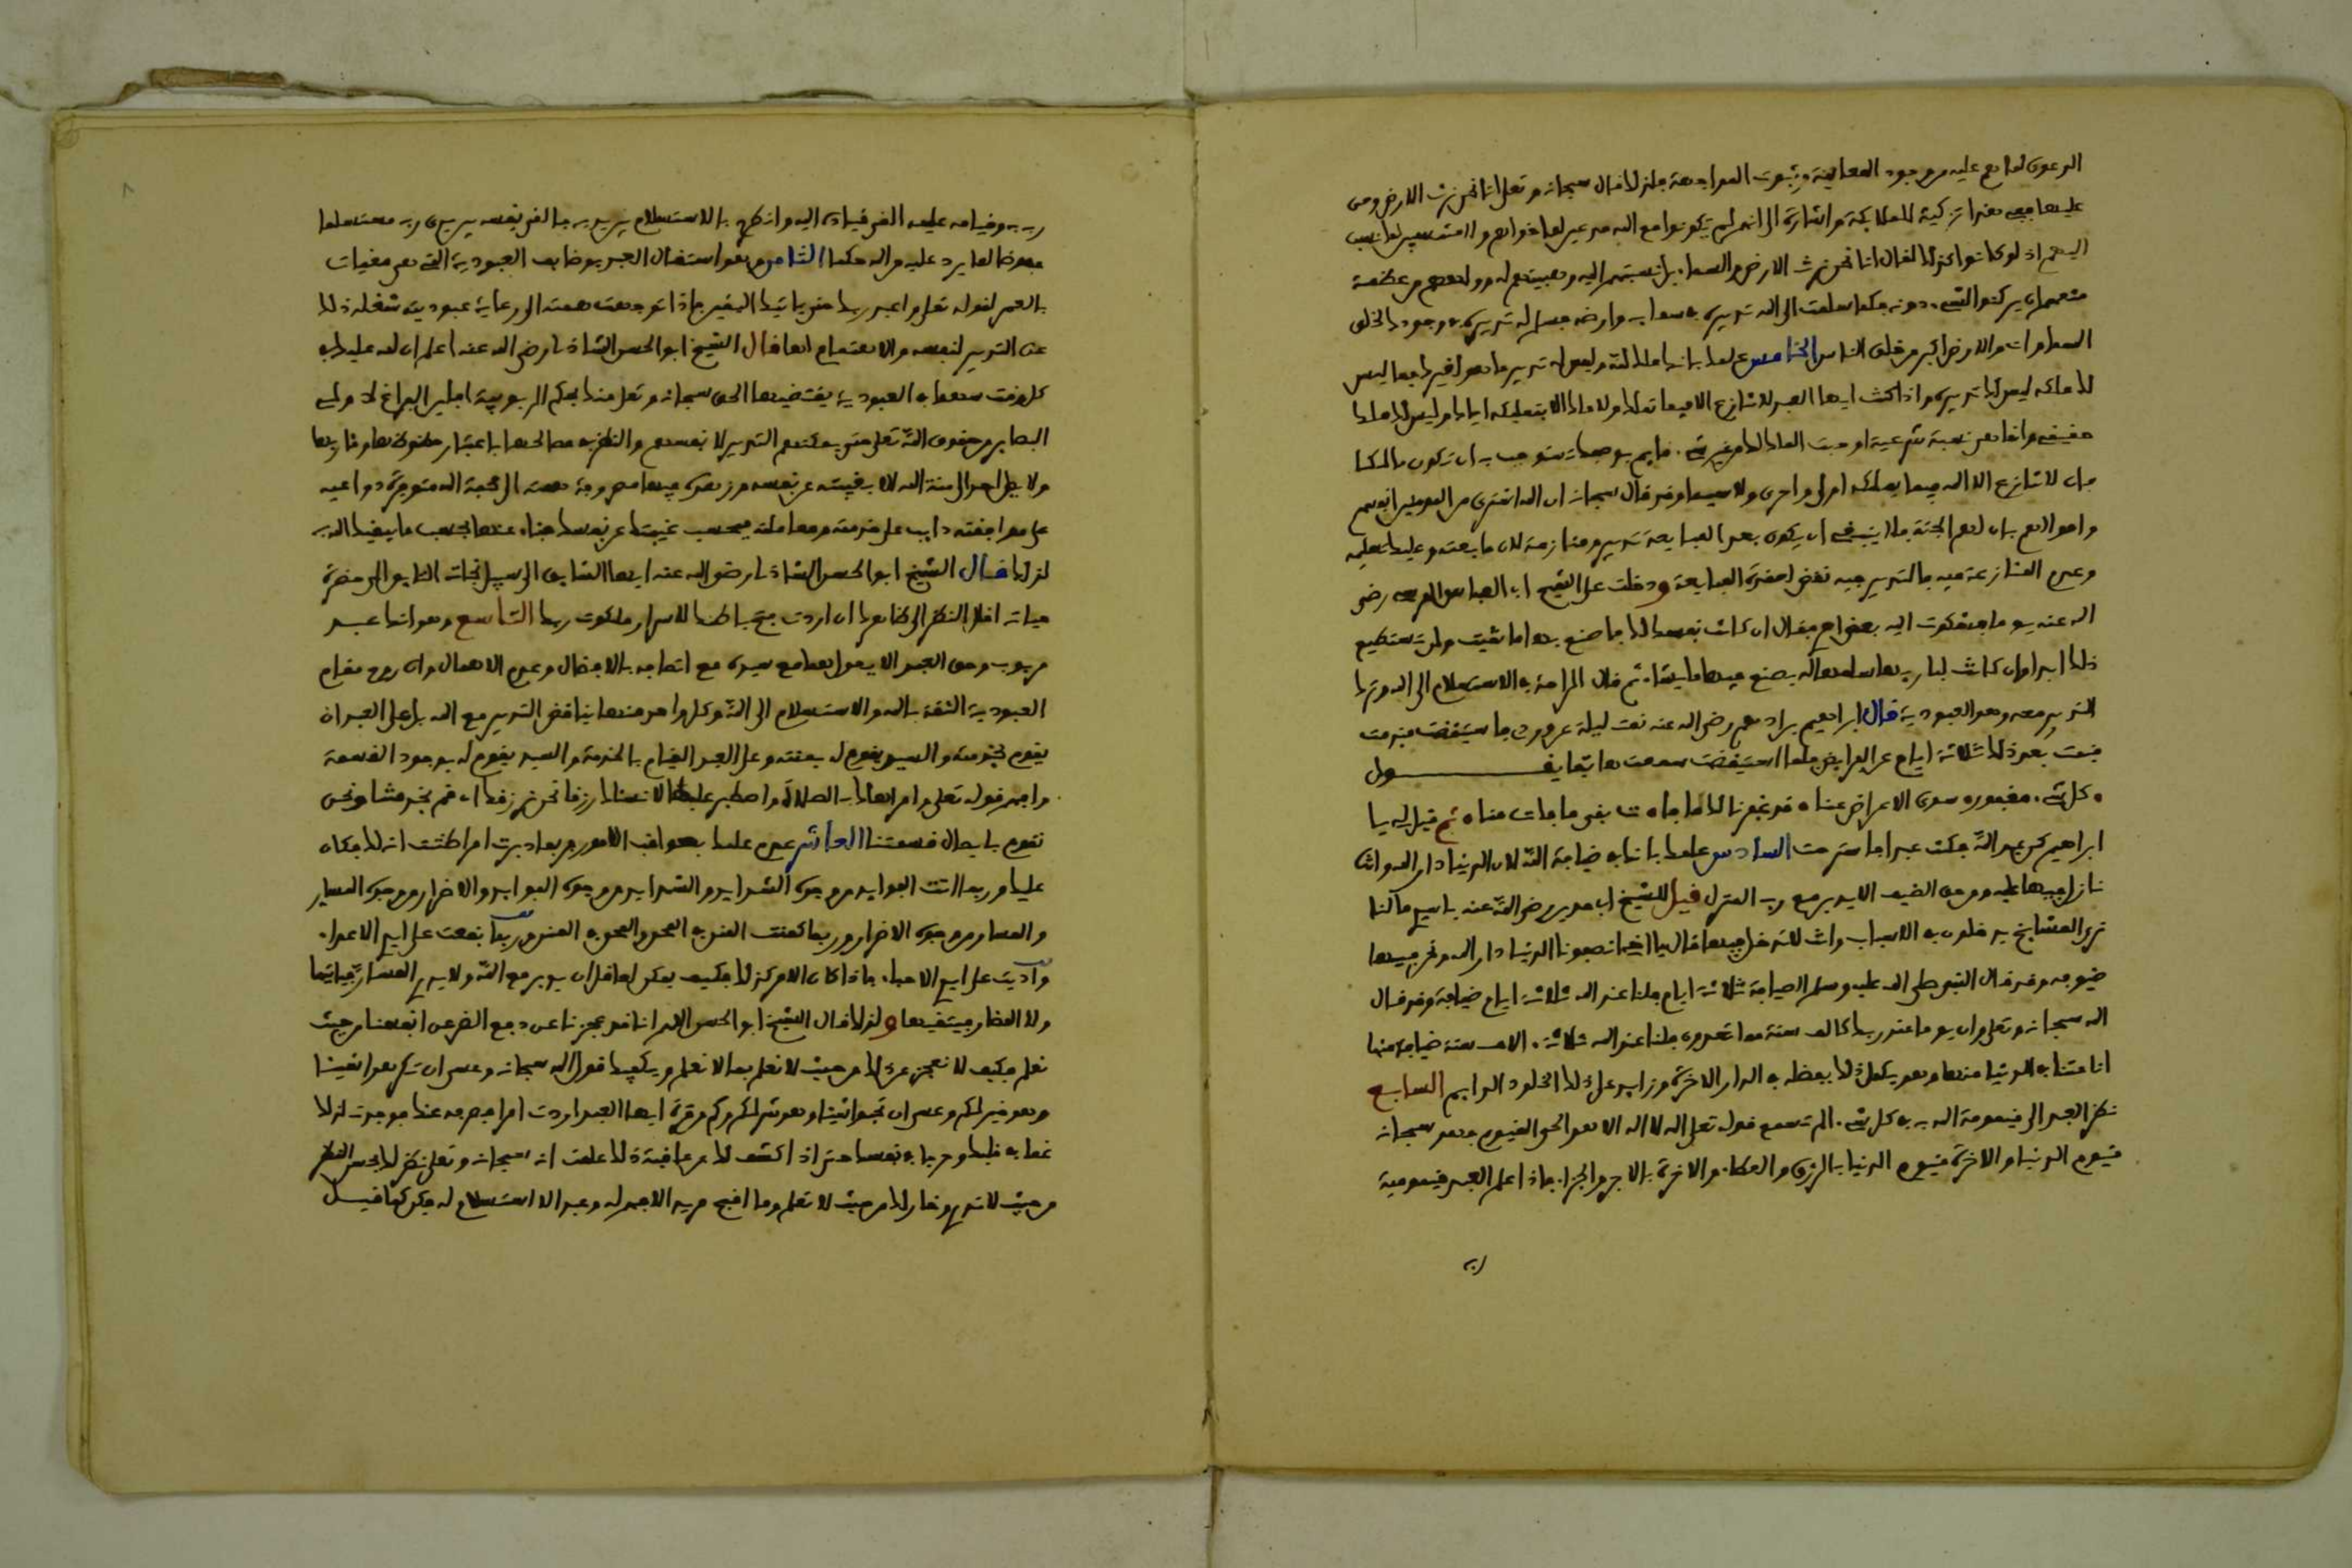 الدعوى لما هم عليه من وجود المعاينة وثبوت المواجهة فلذلك قال سبحانه وتعلى انا نحن نرث الارض ومن
عليها ففي هذا تزكية للملايكة واشارة الى انهم لم يكونوا مع الله مدعين لما خولهم ولا منتسبين لما نسب
اليهم اذ لو كانوا كذلك لقال انا نحن نرث الارض والسماء بل نسبتهم اليه وهيبتهم له وولههم من عظمته
منعهم ان يركنوا لشيء دونه فكما سلمت الى الله تدبيره في سمايه وارضه فسلم له تدبيره في وجودك لخلق
السماوات والارض اكبر من خلق الناس الخامس علمك بانك ملك لله وليس لك تدبير ما هو لغيرك فما ليس
لك ملكه ليس لك تدبيره واذا كنت ايها العبد لا تنازع فيما تملك ولا ملك لك الا بتمليكه اياك وليس لك ملك
حقيقي وانما هي نسبة شرعية اوجبت الملك لك من غير شيء قايم بوصفك تستوجب به ان تكون مالكا
فان لا تنازع الله فيما يملكه اولى واحرى ولا سيما وقد قال سبحانه ان الله اشترى من المومنين انفسهم
واموالهم بان لهم الجنة فلا ينبغي ان يكون بعد المبايعة تدبير ومنازعة لان ما بعته وجب عليك تسليمه
وعدم المنازعة فيه فالتدبير فيه نقض لعقدة المبايعة ودخلت على الشيخ ابي العباس المرسي رضي
الله عنه يوما فشكوت اليه بعض امري فقال ان كانت نفسك لك فاصنع بها ما شيت ولن تستطيع
ذلك ابدا وان كانت لباريها فسلمها له يصنع فيها ما يشاء ثم قال الراحة في الاستسلام الى الله وترك
التدبير معه وهو العبودية قال ابراهيم بن ادهم رضي الله عنه نمت ليلة عن وردي فاستيقضت فندمت
فنمت بعد ذلك ثلاثة ايام عن الفرايض فلما استيقضت سمعت هاتفا يقـــــــول
كل شيء مغفور سوى الاعراض عنا قد غفرنا لك ما فات بقى ما فات منا ثم قيل لي يا
ابراهيم كن عبد الله فكنت عبدا فاسترحت السادس علمك بانك في ضيافة الله لان الدنيا دار الله وانت
نازل فيها عليه ومن حق الضيف الا يدبر مع رب المنزل قيل للشيخ ابي مدين رضي الله عنه يا سيدي ما لنا
نرى المشايخ يدخلون في الاسباب وانت لا تدخل فيها فقال يا اخي انصفونا الدنيا دار الله ونحن فيها
ضيوفه وقد قال النبي صلى الله عليه وسلم الضيافة ثلاثة ايام فلنا عند الله ثلاثة ايام ضيافة وقد قال
الله سبحانه وتعلى وان يوما عند ربك كالف سنة مما تعدون فلنا عند الله ثلاثة الاف سنة ضيافة منها
اقامتنا في الدنيا منها وهو يكمل ذلك بفضله في الدار الاخرة وزايد على ذلك الخلود الدايم السابع
نظر العبد الى قيومية الله به في كل شيء الم تسمع قوله تعلى الله لا اله الا هو الحي القيوم فهو سبحانه
قيوم الدنيا والاخرة قيوم الدنيا بالرزق والعطاء والاخرة بالاجر والجزاء فاذا علم العبد قيومية
ربه
ربه به وقيامه عليه القى قياده اليه وانطرح بالاستسلام بين يديه فالقى نفسه بين يدي ربه مستسلما
مفوضا لما يرد عليه من الله حكما الثامن وهو اشتغال العبد بوظايف العبودية التي هي مغيات
بالعمر لقوله تعلى واعبد ربك حتى ياتيك اليقين فاذا توجهت همته الى رعاية عبوديته شغله ذلك
عن التدبير لنفسه والاهتمام لها قال الشيخ ابو الحسن الشاذلي رضي الله عنه اعلم ان لله عليك في
كل وقت سهما في العبودية يقتضيها الحق سبحانه وتعلى منك بحكم الربوبية اما اين الفراغ لاولي
البصاير من حقوق الله تعلى حتى يمكنهم التدبير لانفسهم والنظر في مصالحها باعتبار حظوظها ومئاربها
ولا يصل احد الى منة الله الا بغيبته عن نفسه وزهده فيها مصروفة همته الى محبة الله متوفرة دواعيه
على موافقته دايب على خدمته ومعاملته فبحسب غيبتك عن نفسك فناء عنها بحسب ما يبقيك الله به
لذلك قـال الشيخ ابو الحسن الشاذلي رضي الله عنه ايها السابق الى سبيل نجاته التايق الى حضرة
حياته اقلل النظر الى ظاهرك ان اردت فتح باطنك لاسرار ملكوت ربك التاسع وهو انك عبد
مربوب وحق العبد الا يعول هما مع سيده مع اتصافه بالافضال وعدم الاهمال وان روح مقام
العبودية الثقة بالله والاستسلام الى الله وكل واحد منهما يناقض التدبير مع الله بل على العبد ان
يقوم بخدمته والسيد يقوم له بمنته وعلى العبد القيام بالخدمة والسيد يقوم له بوجود القسمة
وافهم قوله تعلى وامر اهلك بالصلاة واصطبر عليها لا نسئلك رزقا نحن نرزقك اي قم بخدمتنا ونحن
نقوم بايصال قسمتنا العاشر عدم علمك بعواقب الامور فربما دبرت امرا ظننت انه لك فكان
عليك وربما اتت الفوايد من وجوه الشدايد والشدايد من وجوه الفوايد والاضرار من وجوه المسار
والمسار من وجوه الاضرار وربما كمنت المنن في المحن والمحن في المنن وربما انتفعت على ايدي الاعداء
واذيت على ايدي الاحباء فاذا كان الامر كذلك فكيف يمكن لعاقل ان يدبر مع الله ولا يدري المسار فياتيها
ولا المضار فيتقيها ولذلك قال الشيخ ابو الحسن اللهم انا قد عجزنا عن دفع الضر عن انفسنا من حيث
نعلم فكيف لا نعجز عن ذلك من حيث لا نعلم بما لا نعلم ويكفيك قول الله سبحانه وعسى ان تكرهوا شيئا
وهو خير لكم وعسى ان تحبوا شيئا وهو شر لكم وكم مرة ايها العبد اردت امرا فصرفه عنك فوجدت لذلك
غما في قلبك وحرجا في نفسك حتى اذا كشف لك عن عاقبة ذلك علمت انه سبحانه وتعلى نظر لك بحسن النظر
من حيث لا تدري وخار لك من حيث لا تعلم وما اقبح مريد لا فهم له وعبد لا استسلام له فكن كما قيـل